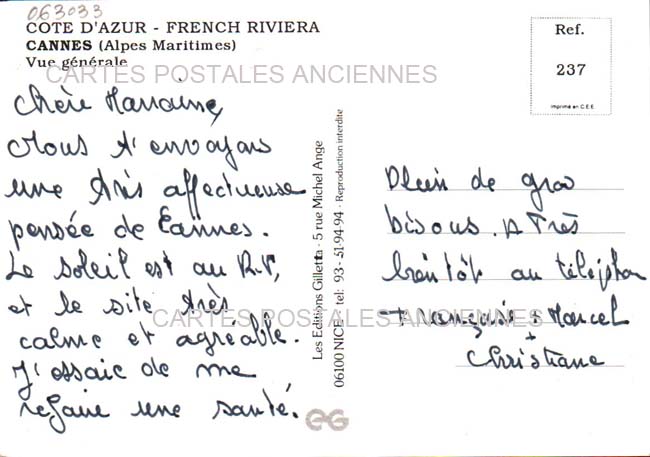 063033
COTE D'AZUR - FRENCH RIVIERA
CANNES (Alpes Maritimes)
Vue générale
CARTES POSTALES ANCIENNES
Chère Marraine,
Nous t'envoyons
une très affectueuse
pensée de Cannes.
Le soleil est au R.V,
et le site très
calme et agréable.
J'essaie de me
refaire une santé.
CARTES POSTALES ANCIENNES
Les Editions Gilletta - 5 rue Michel Ange
06100 NICE - tel: 93 - 51-94-94 - Reproduction interdite
EG
Ref.
237
imprimé en C.E.E.
Plein de gros
bisous. A Très
bientôt au téléphone
Françoise + Marcel
+
Christiane